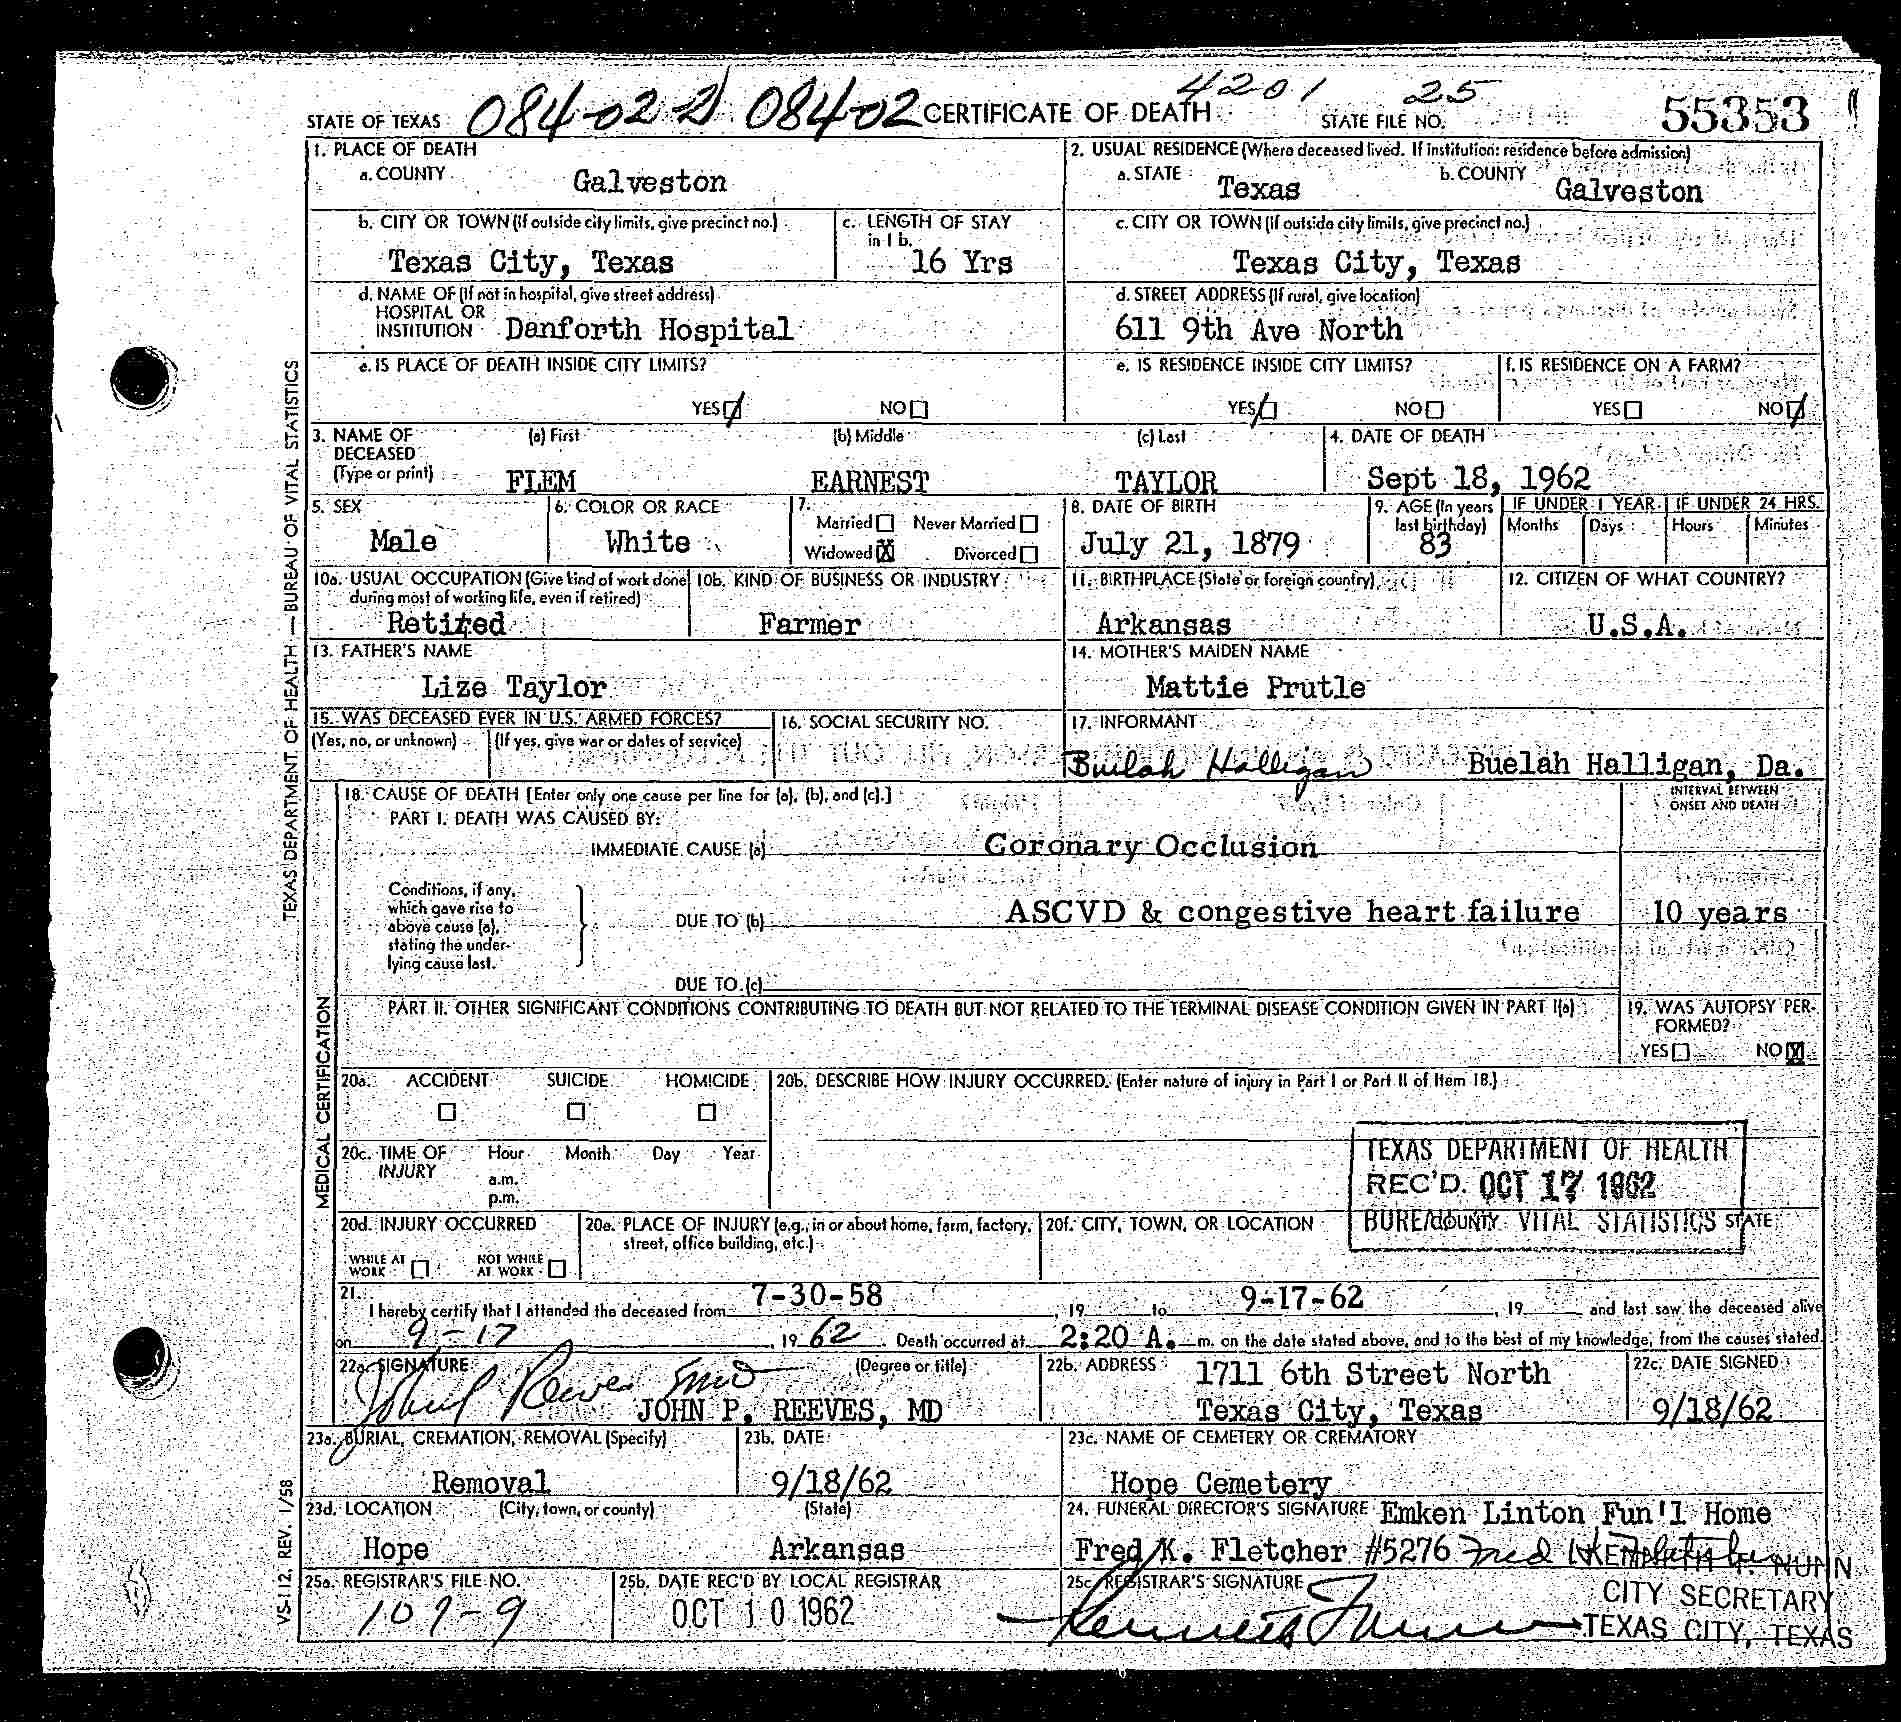 084-02-2 08402 4201 25
STATE OF TEXAS CERTIFICATE OF DEATH STATE FILE NO. 55353
1. PLACE OF DEATH
a. COUNTY Galveston
2. USUAL RESIDENCE (Where deceased lived. If institution: residence before admission)
a. STATE Texas b. COUNTY Galveston
b. CITY OR TOWN (If outside city limits, give precinct no.) Texas City, Texas
c. LENGTH OF STAY in 1 b. 16 Yrs
c. CITY OR TOWN (If outside city limits, give precinct no.) Texas City, Texas
d. NAME OF (If not in hospital, give street address)
HOSPITAL OR
INSTITUTION Danforth Hospital
d. STREET ADDRESS (If rural, give location)
611 9th Ave North
e. IS PLACE OF DEATH INSIDE CITY LIMITS?
YES NO
e. IS RESIDENCE INSIDE CITY LIMITS?
YES NO
f. IS RESIDENCE ON A FARM?
YES NO
3. NAME OF DECEASED (Type or print)
(a) First (b) Middle (c) Last
FLEM EARNEST TAYLOR
4. DATE OF DEATH
Sept 18, 1962
5. SEX
Male
6. COLOR OR RACE
White
7.
Married Never Married
Widowed X Divorced
8. DATE OF BIRTH
July 21, 1879
9. AGE (In years last birthday)
83
IF UNDER 1 YEAR IF UNDER 24 HRS.
Months Days Hours Minutes
10a. USUAL OCCUPATION (Give kind of work done during most of working life, even if retired)
Retired
10b. KIND OF BUSINESS OR INDUSTRY
Farmer
11. BIRTHPLACE (State or foreign country)
Arkansas
12. CITIZEN OF WHAT COUNTRY?
U.S.A.
13. FATHER'S NAME
Lize Taylor
14. MOTHER'S MAIDEN NAME
Mattie Prutle
15. WAS DECEASED EVER IN U.S. ARMED FORCES?
(Yes, no, or unknown) (If yes, give war or dates of service)
16. SOCIAL SECURITY NO.
17. INFORMANT
Buelah Halligan Buelah Halligan, Da.
18. CAUSE OF DEATH [Enter only one cause per line for (a), (b), and (c).]
INTERVAL BETWEEN ONSET AND DEATH
PART I. DEATH WAS CAUSED BY:
IMMEDIATE CAUSE (a) Coronary Occlusion
Conditions, if any,
which gave rise to
above cause (a),
stating the under-
lying cause last.
DUE TO (b) ASCVD & congestive heart failure 10 years
DUE TO (c)
PART II. OTHER SIGNIFICANT CONDITIONS CONTRIBUTING TO DEATH BUT NOT RELATED TO THE TERMINAL DISEASE CONDITION GIVEN IN PART I(a)
19. WAS AUTOPSY PER-
FORMED?
YES NO X
20a. ACCIDENT SUICIDE HOMICIDE
20b. DESCRIBE HOW INJURY OCCURRED. (Enter nature of injury in Part I or Part II of Item 18.)
20c. TIME OF INJURY
Hour Month Day Year
a.m.
p.m.
TEXAS DEPARTMENT OF HEALTH
REC'D. OCT 17 1962
BUREAU VITAL STATISTICS
20d. INJURY OCCURRED
WHILE AT WORK NOT WHILE AT WORK
20e. PLACE OF INJURY (e.g., in or about home, farm, factory, street, office building, etc.)
20f. CITY, TOWN, OR LOCATION COUNTY STATE
21. I hereby certify that I attended the deceased from 7-30-58, 19 to 9-17-62, 19 and last saw the deceased alive
on 9-17, 1962. Death occurred at 2:20 A. m. on the date stated above, and to the best of my knowledge, from the causes stated.
22a. SIGNATURE (Degree or title)
John P Reeves MD
JOHN P. REEVES, MD
22b. ADDRESS 1711 6th Street North
Texas City, Texas
22c. DATE SIGNED
9/18/62
23a. BURIAL, CREMATION, REMOVAL (Specify)
Removal
23b. DATE
9/18/62
23c. NAME OF CEMETERY OR CREMATORY
Hope Cemetery
23d. LOCATION (City, town, or county) (State)
Hope Arkansas
24. FUNERAL DIRECTOR'S SIGNATURE Emken Linton Fun'l Home
Fred K. Fletcher #5276 Fred K Fletcher
25a. REGISTRAR'S FILE NO.
109-9
25b. DATE REC'D BY LOCAL REGISTRAR
OCT 10 1962
25c. REGISTRAR'S SIGNATURE
KENNETH T. NUNN
CITY SECRETARY
TEXAS CITY, TEXAS
TEXAS DEPARTMENT OF HEALTH — BUREAU OF VITAL STATISTICS
MEDICAL CERTIFICATION
VS-12, REV. 1/58